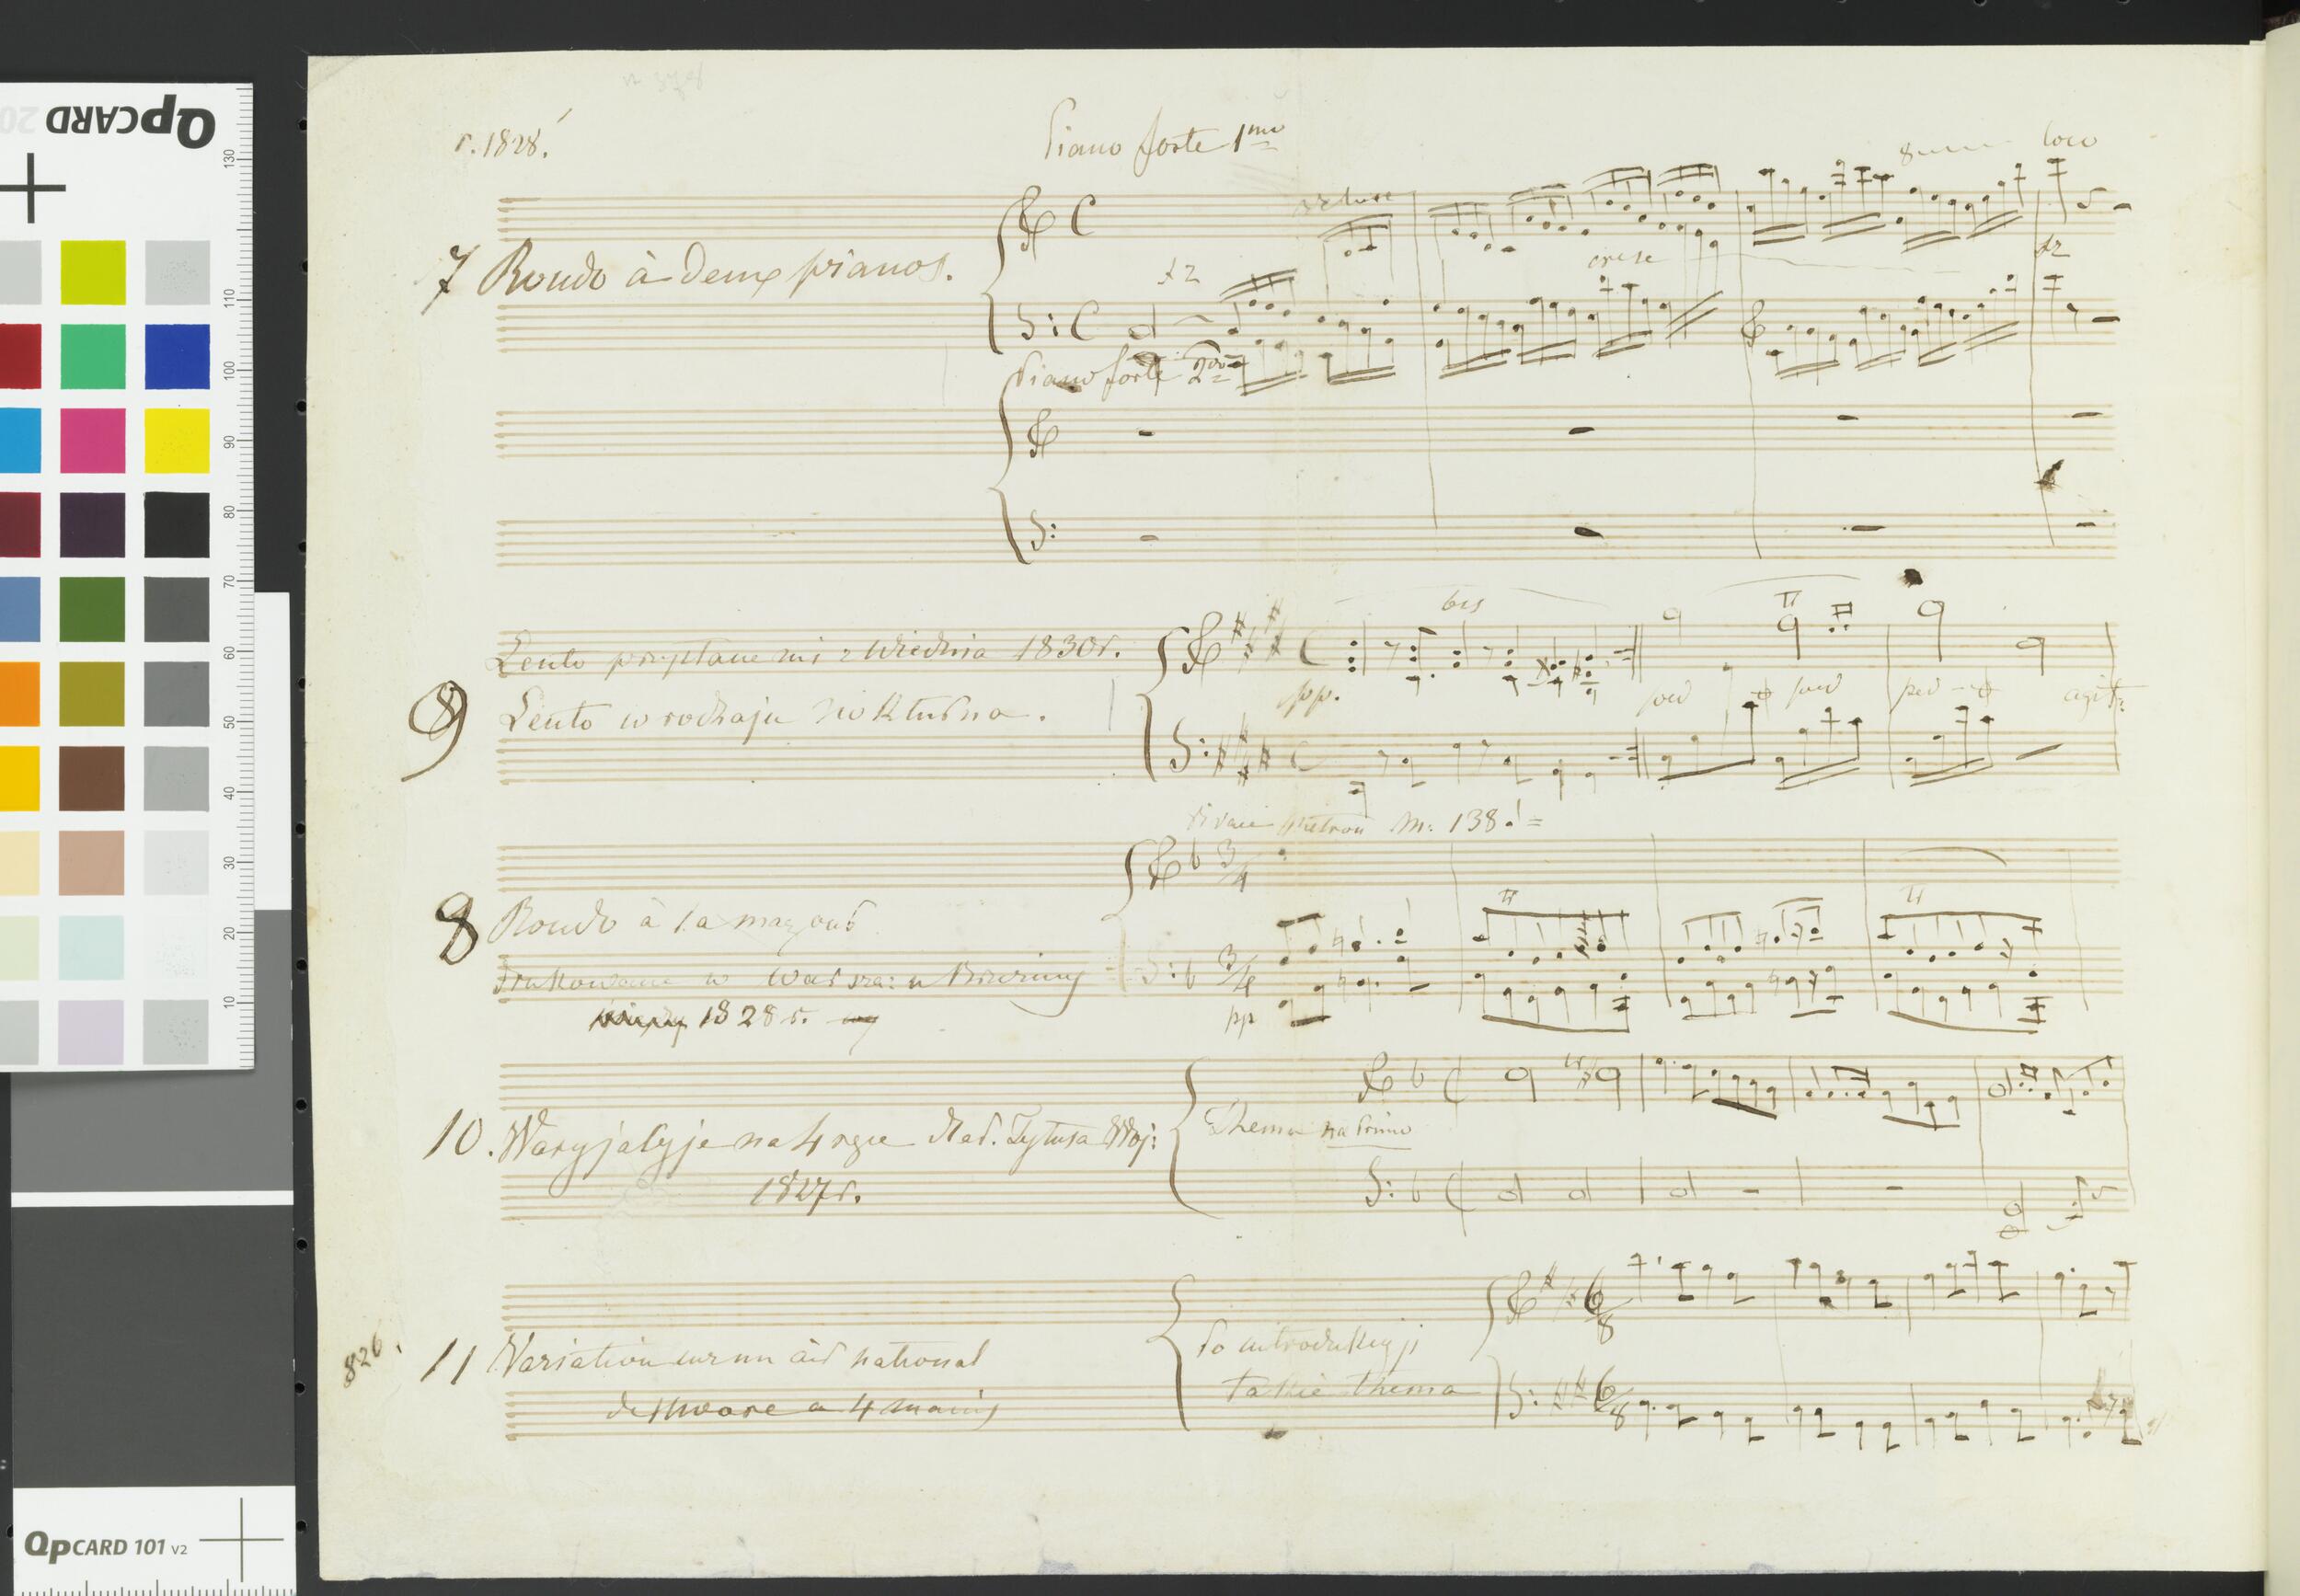 QpCARD 20
130
110
100
90
80
70
60
50
40
30
20
10
QpCARD 101 v2
r. 1828.
Piano forte 1mo
loco
7 Rondo à deux pianos.
cresc
Piano forte 2do
bis
Lento przysłane mi z Wiednia 1830 r.
pp.
9 Lento w rodzaju Nokturna.
ped
ped
ped
agit:
metron M: 138
8 Rondo à la mazour
drukowane w Warsza: u Brzeziny
1828 r.
pp
10. Waryjacyje na 4 ręce Ded. Tytusa Woj:
Thema na Primo
1827 r.
826.
11 Variation sur un air national
de Moore a 4 mains
Po introdukcyji
takie thema
6/8
6/8